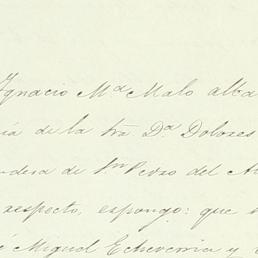 Ignacio Mª Malo alba
ia de la tra Dª Dolores
dera de Dn Pedro del A
respecto, espongo: que
é Miguel Echeverria y